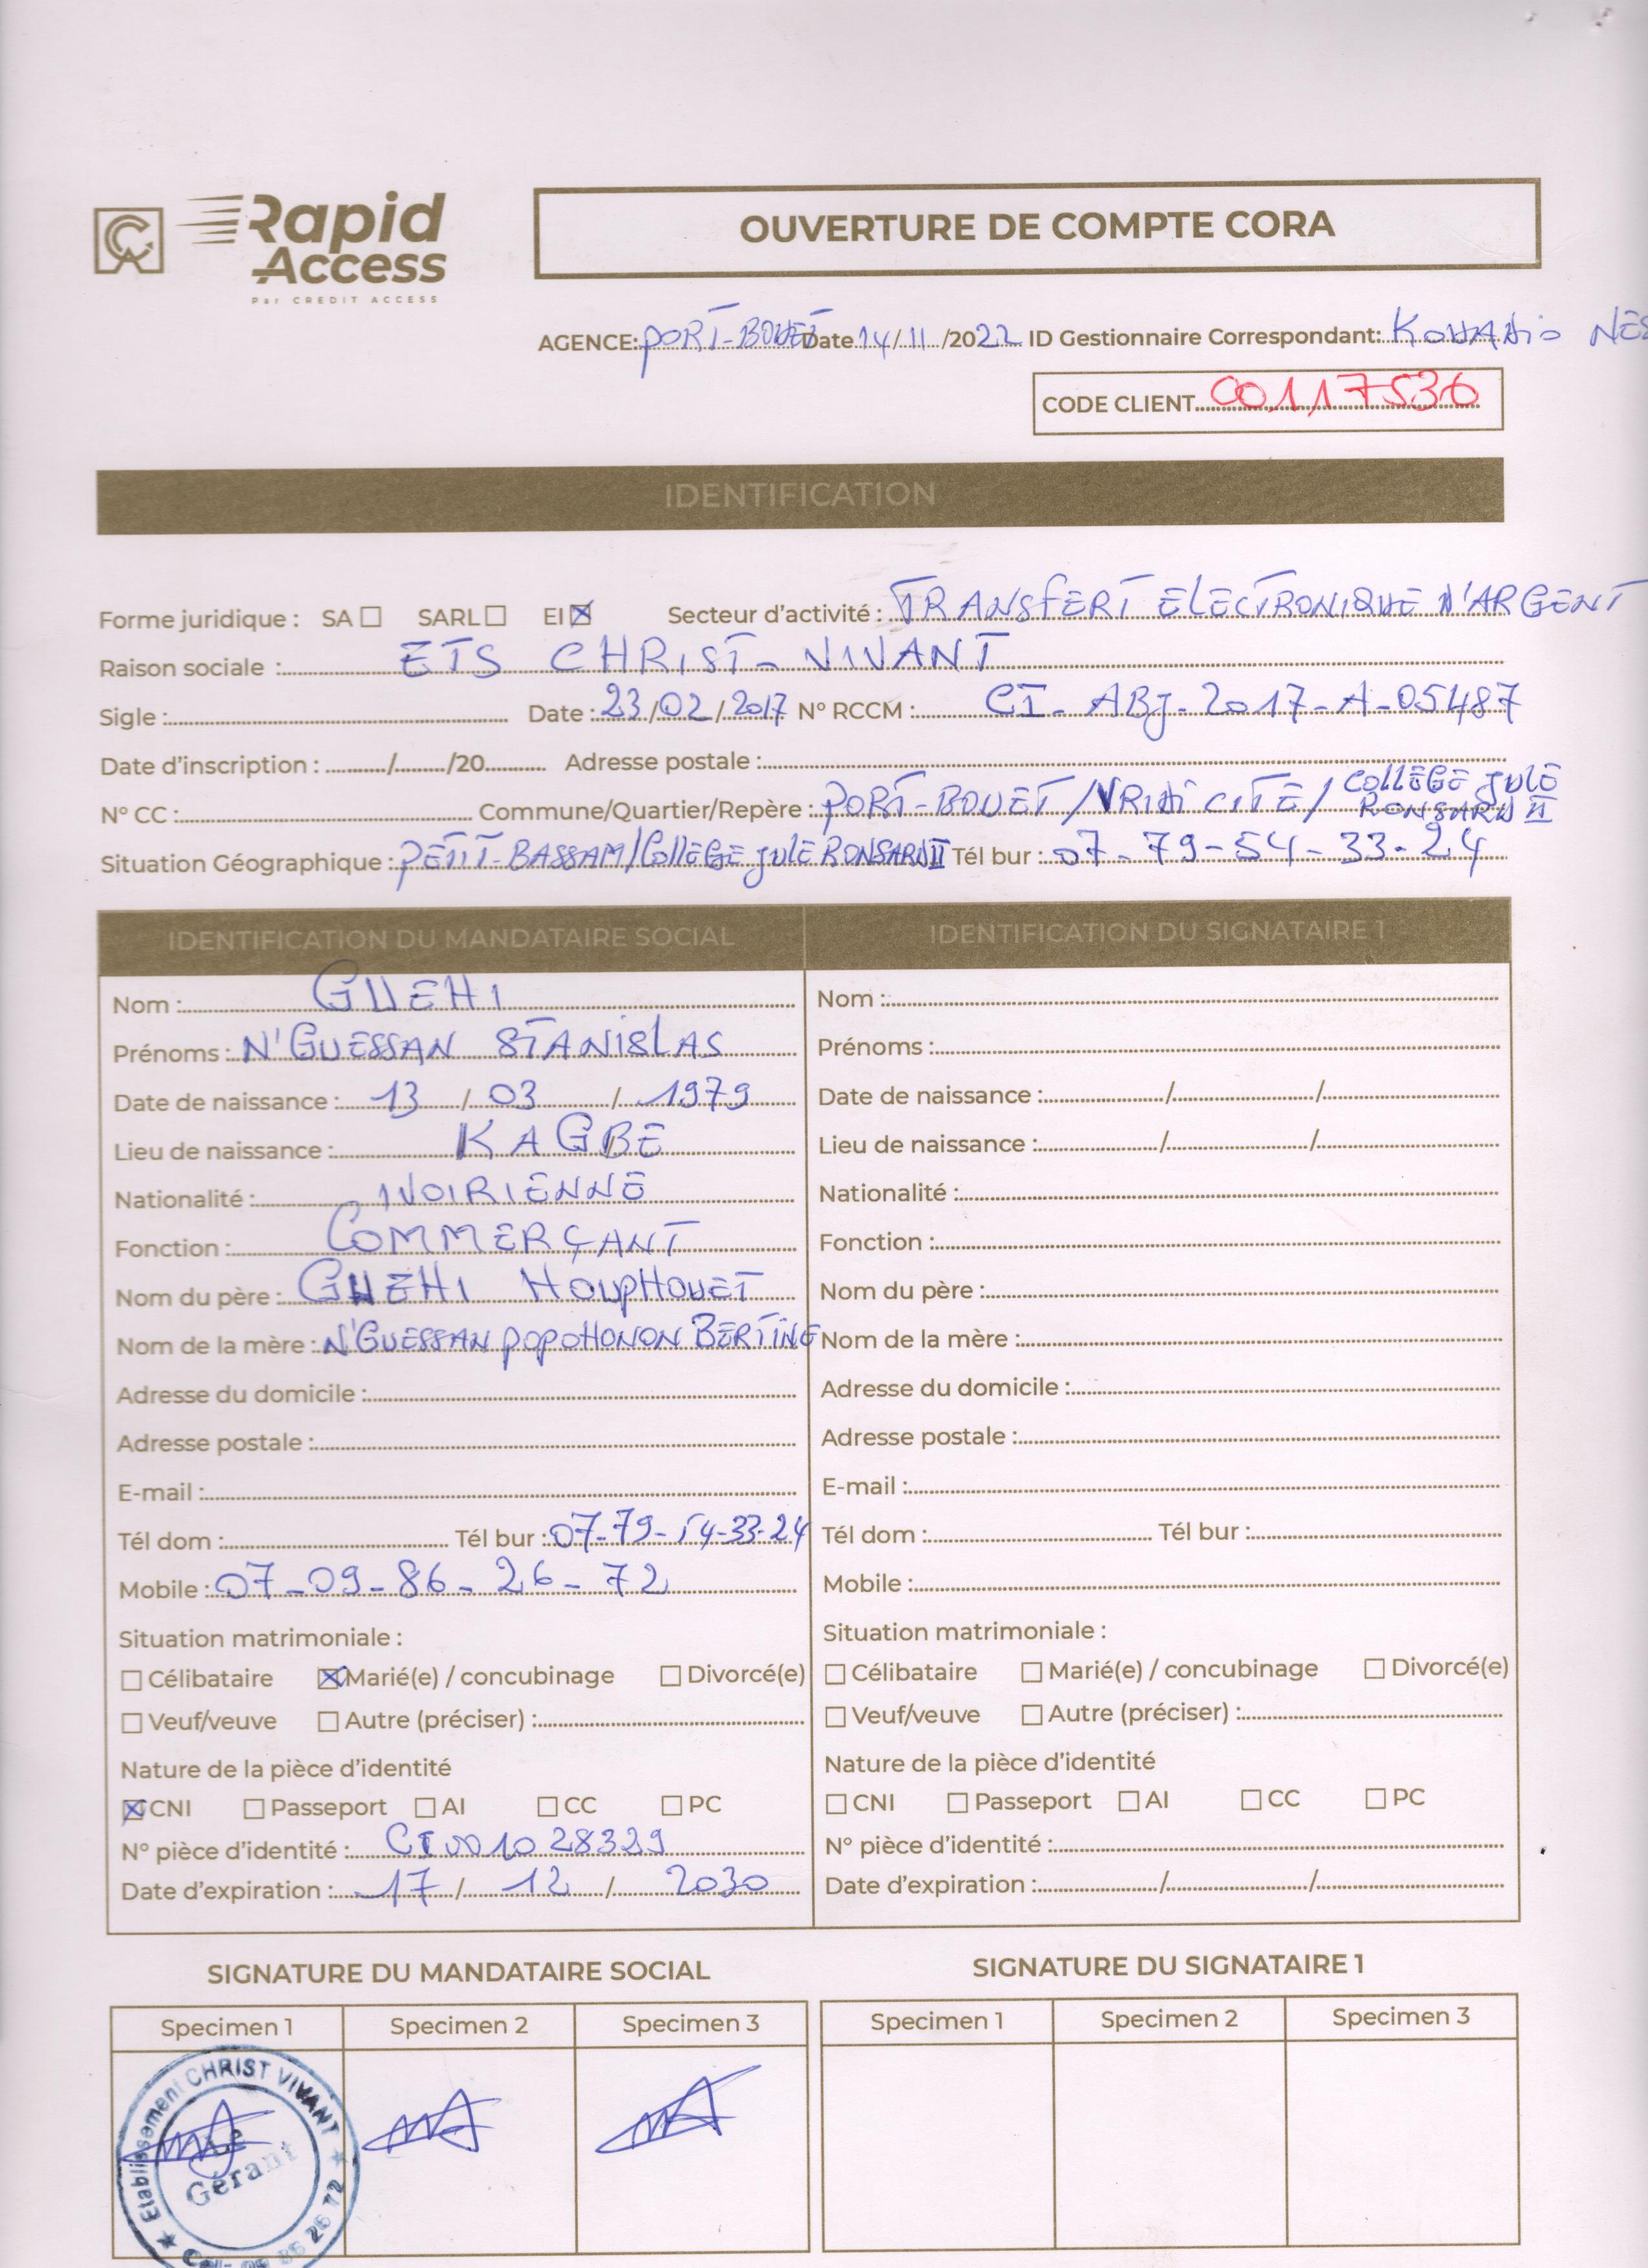 Rapid
Access
Par CREDIT ACCESS
OUVERTURE DE COMPTE CORA
AGENCE: PORT-BOUET Date 14/11/2022 ID Gestionnaire Correspondant: KOUADIO
CODE CLIENT 00117536
IDENTIFICATION
Forme juridique : SA SARL EI Secteur d'activité : TRANSFERT ELECTRONIQUE D'ARGENT
Raison sociale : ETS CHRIST-VIVANT
Sigle : Date : 23/02/2017 N° RCCM : CI-ABJ-2017-A-05487
Date d'inscription : / /20 Adresse postale :
N° CC : Commune/Quartier/Repère : PORT-BOUET/VRIDI CITE/ COLLEGE JULE RONSARD II
Situation Géographique : PETIT-BASSAM/COLLEGE JULE RONSARD II Tél bur : 07-79-54-33-24
IDENTIFICATION DU MANDATAIRE SOCIAL
Nom : GUEHI
Prénoms : N'GUESSAN STANISLAS
Date de naissance : 13 / 03 / 1979
Lieu de naissance : KAGBE
Nationalité : IVOIRIENNE
Fonction : COMMERÇANT
Nom du père : GUEHI HOUPHOUET
Nom de la mère : N'GUESSAN POPOHONON BERTINE
Adresse du domicile :
Adresse postale :
E-mail :
Tél dom : Tél bur : 07-79-54-33-24
Mobile : 07-09-86-26-72
Situation matrimoniale :
Célibataire Marié(e) / concubinage Divorcé(e)
Veuf/veuve Autre (préciser) :
Nature de la pièce d'identité
CNI Passeport AI CC PC
N° pièce d'identité : CI001028329
Date d'expiration : 17 / 12 / 2030
IDENTIFICATION DU SIGNATAIRE 1
Nom :
Prénoms :
Date de naissance : / /
Lieu de naissance : / /
Nationalité :
Fonction :
Nom du père :
Nom de la mère :
Adresse du domicile :
Adresse postale :
E-mail :
Tél dom : Tél bur :
Mobile :
Situation matrimoniale :
Célibataire Marié(e) / concubinage Divorcé(e)
Veuf/veuve Autre (préciser) :
Nature de la pièce d'identité
CNI Passeport AI CC PC
N° pièce d'identité :
Date d'expiration : / /
SIGNATURE DU MANDATAIRE SOCIAL
Specimen 1 Specimen 2 Specimen 3
Etablissement CHRIST VIVANT
Le
Gérant
SIGNATURE DU SIGNATAIRE 1
Specimen 1 Specimen 2 Specimen 3